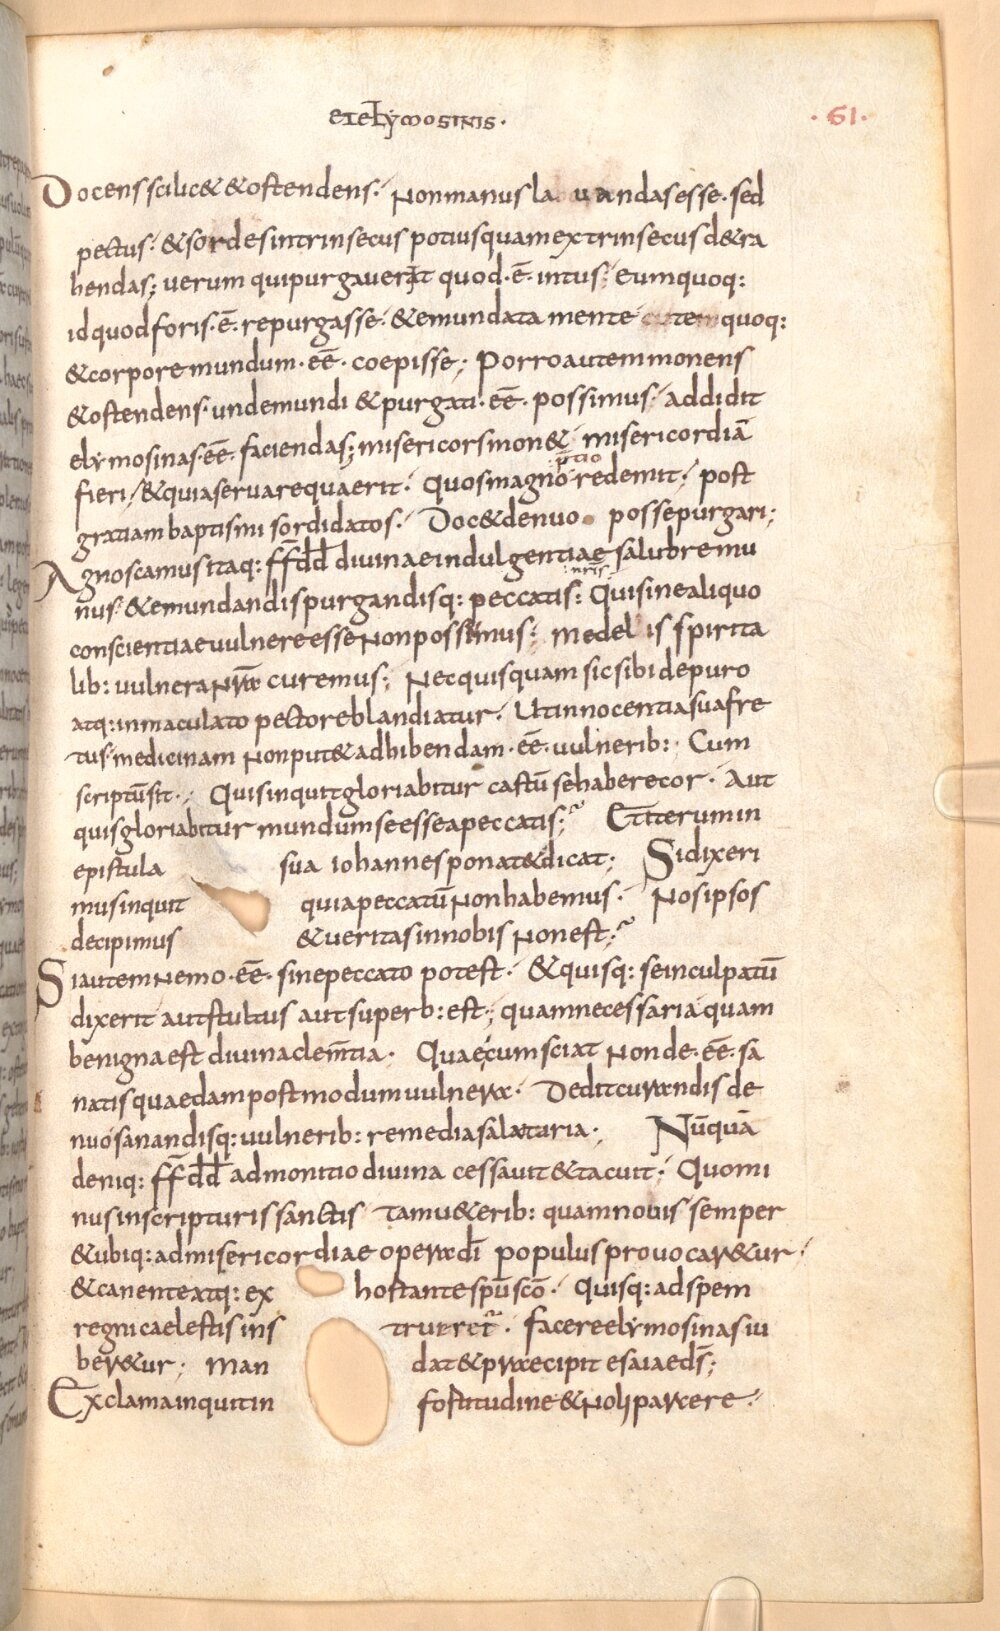 et elymosinis·
·61·
Docens scilic& & ostendens· Non manus la uandas esse· sed
pectus· & sordes intrinsecus potius quam extrinsecus d&ra
hendas; uerum qui purgauerit quod·ē·intus· eum quoq:
id quod foris·ē·repurgasse· & emundata mente cutem quoq:
& corpore mundum·eē·coepisse; Porro autem monens
& ostendens· unde mundi & purgati·eē·possimus· addidit
elymosinas·eē·faciendas; misericors mon& misericordiā
fieri/ & quia seruare quaerit· quos magno p̄tio redemit; post
gratiam baptismi sordidatos· Doc& denuo posse purgari;
Agnoscamus itaq: ff̄ dd̄ diuinae indulgentiae salubre mu
nus· & emundandis purgandisq: peccatis nr̄is: Qui sine aliquo
conscientiae uulnere esse Non possimus; medelis spirita
lib: uulnera Nr̄a curemus; Nec quisquam sic sibi de puro
atq: inmaculato pectore blandiatur· Ut innocentia sua fre
tus· medicinam Non put& adhibendam·eē·uulnerib:· Cum
scriptū sit·; Quis inquit gloriabitur castū se habere cor· Aut
quis gloriabitur mundum se esse a peccatis; Et iterum in
epistula sua iohannes ponat & dicat; Si dixeri
mus inquit quia peccatū Non habemus· Nos ipsos
decipimus & ueritas in nobis Non est;
Si autem Nemo·eē·sine peccato potest· & quisq: se inculpatū
dixerit aut stultus aut superb: est; quam necessaria quam
benigna est diuina clem̄tia· Quae cum sciat Non de·eē·sa
natis quaedam postmodum uulnera· Dedit curandis de
nuo sanandisq: uulnerib: remedia salutaria; Nūquā
deniq: ff̄ dd̄ admonitio diuina cessauit & tacuit; Quomi
nus in scripturis sanctis tam u&erib: quam nouis semper
& ubiq: ad misericordiae operadī populus prouocar&ur·
& canente atq: ex hostante spū scō· Quisq: ad spem
regni caelestis ins truitur· facere elymosinas iu
ber&ur; Man dat & praecipit esaiae ds̄;
Exclama inquit in fostitudine & Noli parcere·